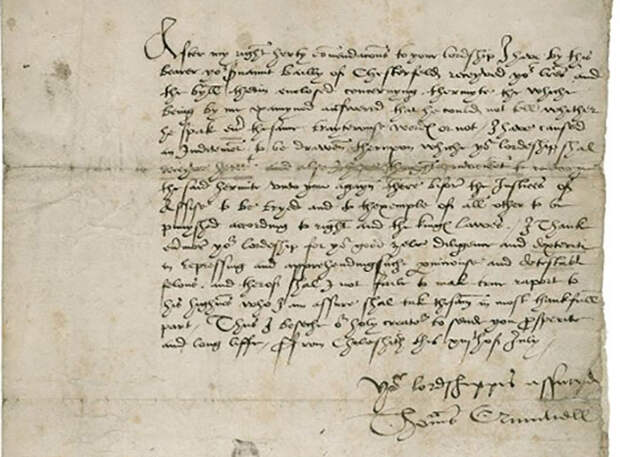 After my right herty comendacons to your lordship I have by this
berer yor servaunt Bailly of Chesterfeld receyved yor lres and
the byll therin enclosed concernyng thermyte the whiche
being by me examyned answered that he could not tell whether
he spak ever the same traiterouse wordes or not / I have caused
an Inditement to be drawen therupon whiche yor lordeship shal
receyve herewt and also
the said hermite unto you agayn there before the Justices of
Assise to be tryed and to thexemple of all other to be
punyshed according to right and the kinges lawes. I Thank
yor lordeship for yor good zele diligence and dexterite
in repressing and apprehending suche and detestable
felons. and therof shal I not faile to make true raport to
his highnes who I am assure shal tak the same in most thankfull
part. Thus I beseche or holy creator to send you prosperite
and long liffe / From this of July
Yor lordshippis assuryd
Thomas Crumwell